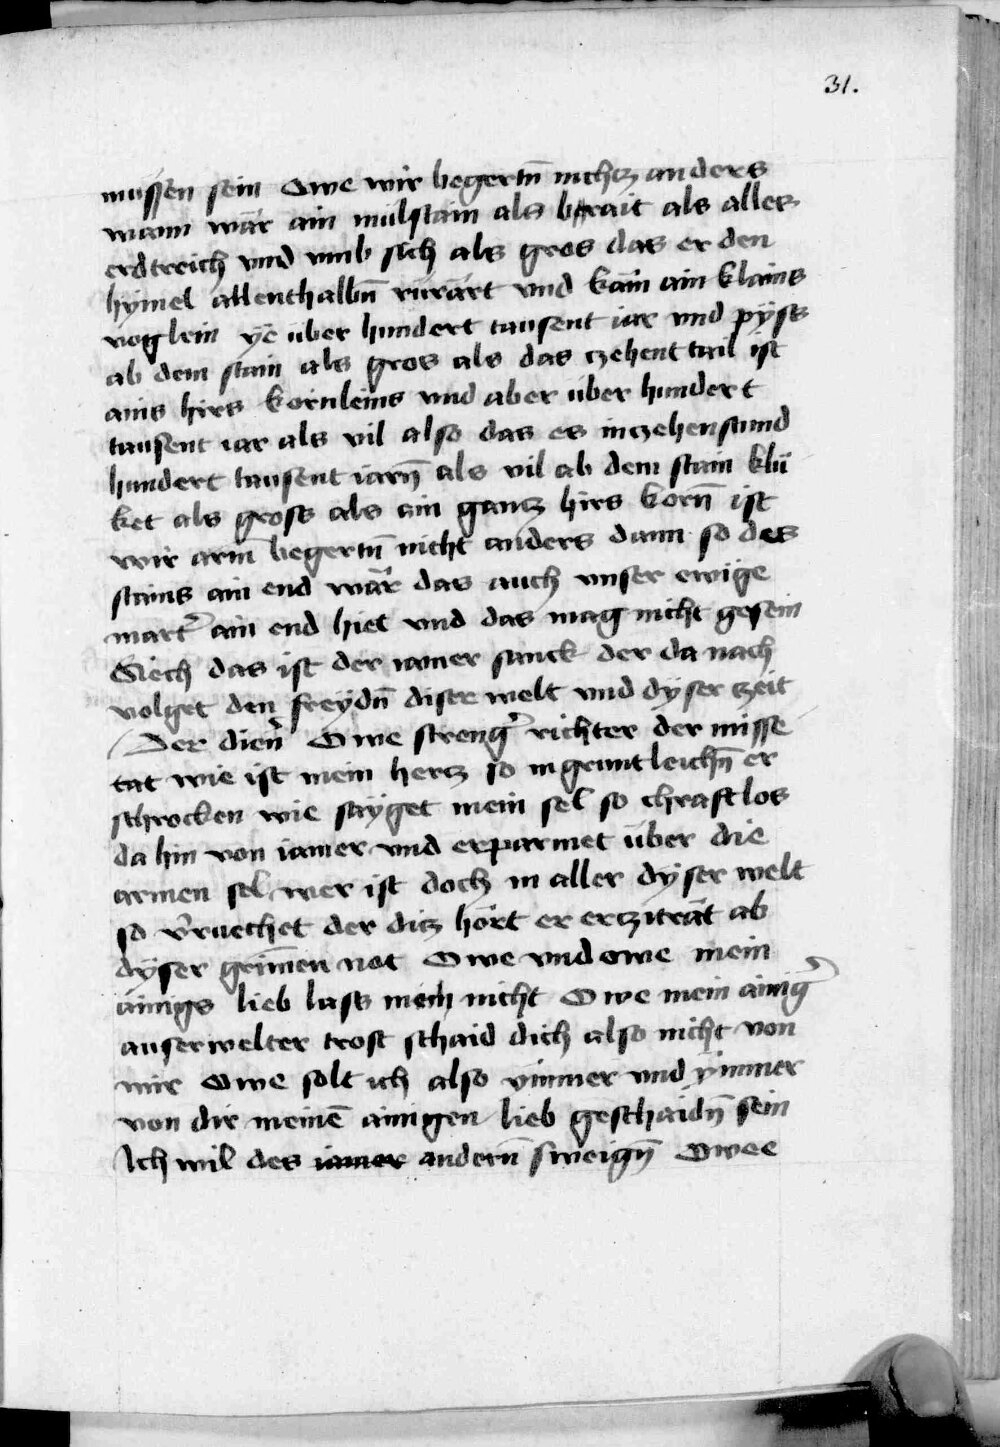 31.
müssen sein Owe wir begertn̄ nichtz anders
wann wär ain mülstain als brait als alles
erdtreich vnd vmb sich als gros das er den
hymel allenthalbn̄ rürärt vnd käm ain klains
voglein ye über hundert tausent iar vnd pyss
ab dem stain als gros als das zehent tail ist
ains hirs kornleins vnd aber über hundert
tausent iar als vil also das es in zehenstund
hundert tausent iarn̄ als vil ab dem stain klü
ket als gross als ain gantz hirs korn̄ ist
wir arm̄ begertn̄ nicht anders dann so des
stains ain end wär das auch vnser ewige
mart͛ ain end hiet vnd das mag nicht gesein
Siech das ist der iamer sanck der da nach
volget den freydn̄ diser welt vnd dyser zeit
Der dien͛ Owe streng͛ richter der misse
tat wie ist mein hertz so in gruntleichn̄ er
schrocken wie sayget mein sel so chraftlos
da hin von iamer vnd erparmet über die
armen sel wer ist doch in aller dyser welt
so v͛ruechet der ditz hört er erziträt ab
dyser grim̄en not Owe vnd owe mein
ainigs lieb lass mich nicht Owe mein ainig͛
auserwelter trost schaid dich also nicht von
mir Owe solt ich also ymmer vnd ymmer
von dir meinē ainigen lieb geschaidn̄ sein
Ich wil des iamer andern̄ sweign̄ Owee